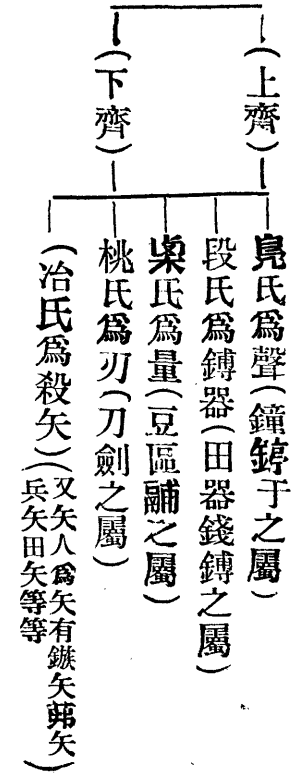 （上齊）
（下齊）
鳧氏爲聲（鐘錞于之屬）
段氏爲鎛器（田器錢鎛之屬）
㮚氏爲量（豆區鬴之屬）
桃氏爲刃（刀劍之屬）
（冶氏爲殺矢）（又矢人爲矢有鏃矢茀矢
兵矢田矢等等）